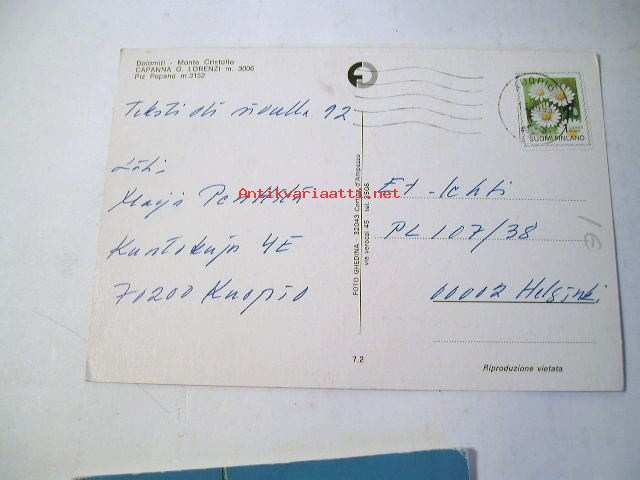 Dolomiti - Monte Cristallo
CAPANNA G. LORENZI m. 3006
Piz Popena m.3152
Teksti oli sivulla 92
Läh.
Marja
Kuntokuja 4E
70200 Kuopio
Antikvariaatti.net
FOTO GHEDINA - 32043 Cortina d'Ampezzo
via verocai 45 tel. 2506
SUOMI FINLAND
1
ET-lehti
PL 107/38
00002 Helsinki
7.2
Riproduzione vietata